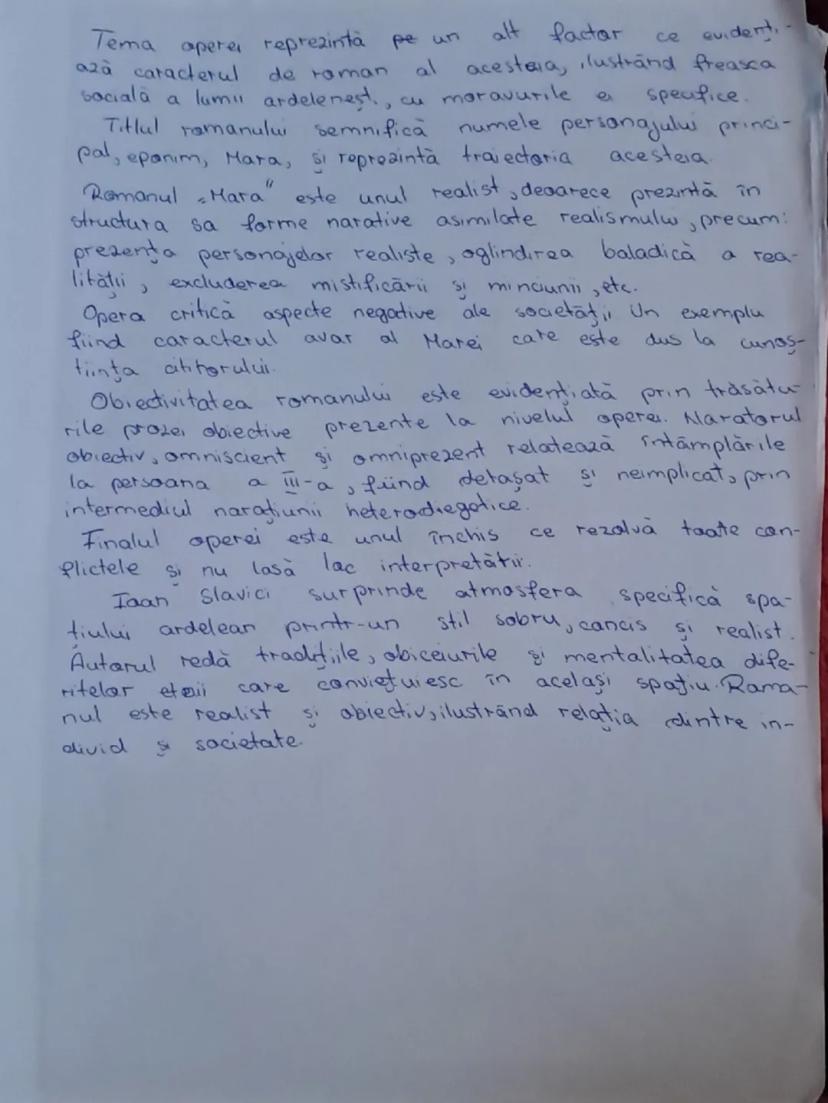 Tema operei reprezintă pe un alt factor ce evidenți-
ază caracterul de roman al acesteia, ilustrând freasca
socială a lumii ardelenești, cu moravurile ei specifice.
Titlul romanului semnifică numele personajului princi-
pal, eponim, Mara, și reprezintă traiectoria acesteia.
Romanul „Mara" este unul realist, deoarece prezintă în
structura sa forme narative asimilate realismului, precum:
prezența personajelor realiste, oglindirea baladică a rea-
lității, excluderea mistificării și minciunii, etc.
Opera critică aspecte negative ale societății. Un exemplu
fiind caracterul avar al Marei care este dus la cunoș-
tiința cititorului.
Obiectivitatea romanului este evidențiată prin trăsătu-
rile prozei obiective prezente la nivelul operei. Naratorul
obiectiv, omniscient și omniprezent relatează întâmplările
la persoana a III-a, fiind detașat și neimplicat, prin
intermediul narațiunii heterodiegetice.
Finalul operei este unul închis ce rezolvă toate con-
flictele și nu lasă loc interpretării.
Ioan Slavici surprinde atmosfera specifică spa-
țiului ardelean printr-un stil sobru, concis și realist.
Autorul redă tradițiile, obiceiurile și mentalitatea dife-
ritelor etnii care conviețuiesc în același spațiu. Roma-
nul este realist și obiectiv, ilustrând relația dintre in-
divid și societate.